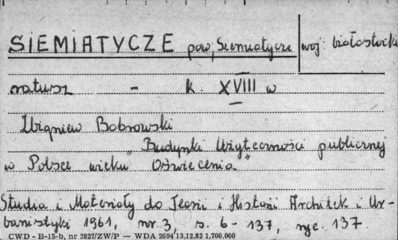 SIEMIATYCZE pow. Siemiatycze woj. białostockie
ratusz - k. XVIII w
Zbigniew Bobrowski
„Budynki Użyteczności publicznej
w Polsce wieku Oświecenia"
Studia i Materiały do Teorii i Historii Architek i Ur-
banistyki 1961, nr. 3, s. 6-137, ryc. 137
CWD - B-15-b, nr 2827/ZW/P — WDA 2694 13.12.52 1.700.000